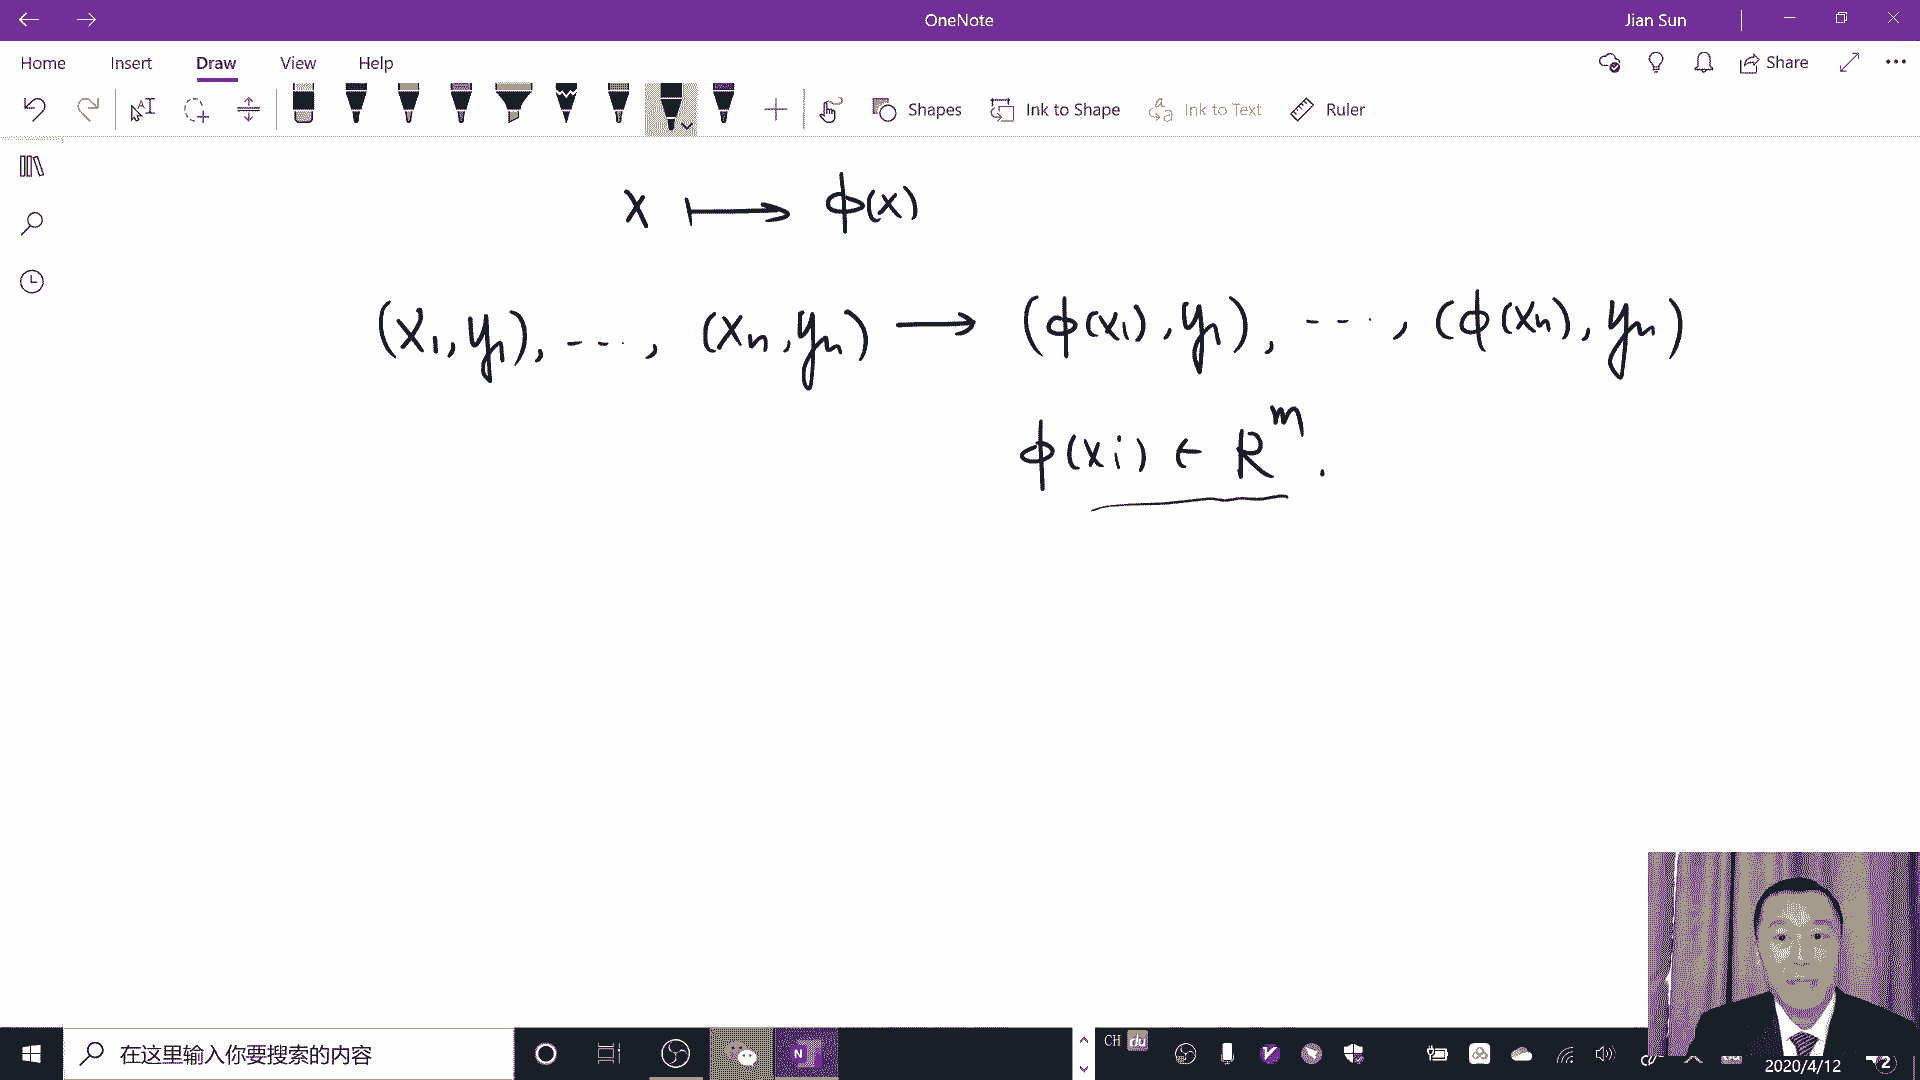 OneNote
Jian Sun
Home Insert Draw View Help
Share
Shapes Ink to Shape Ink to Text Ruler
x ⟼ ϕ(x)
(x₁, y₁), ---, (xₙ, yₙ) → (ϕ(x₁), y₁), ---, (ϕ(xₙ), yₙ)
ϕ(xi) ∈ Rᵐ.
在这里输入你要搜索的内容
CH du
2020/4/12
2